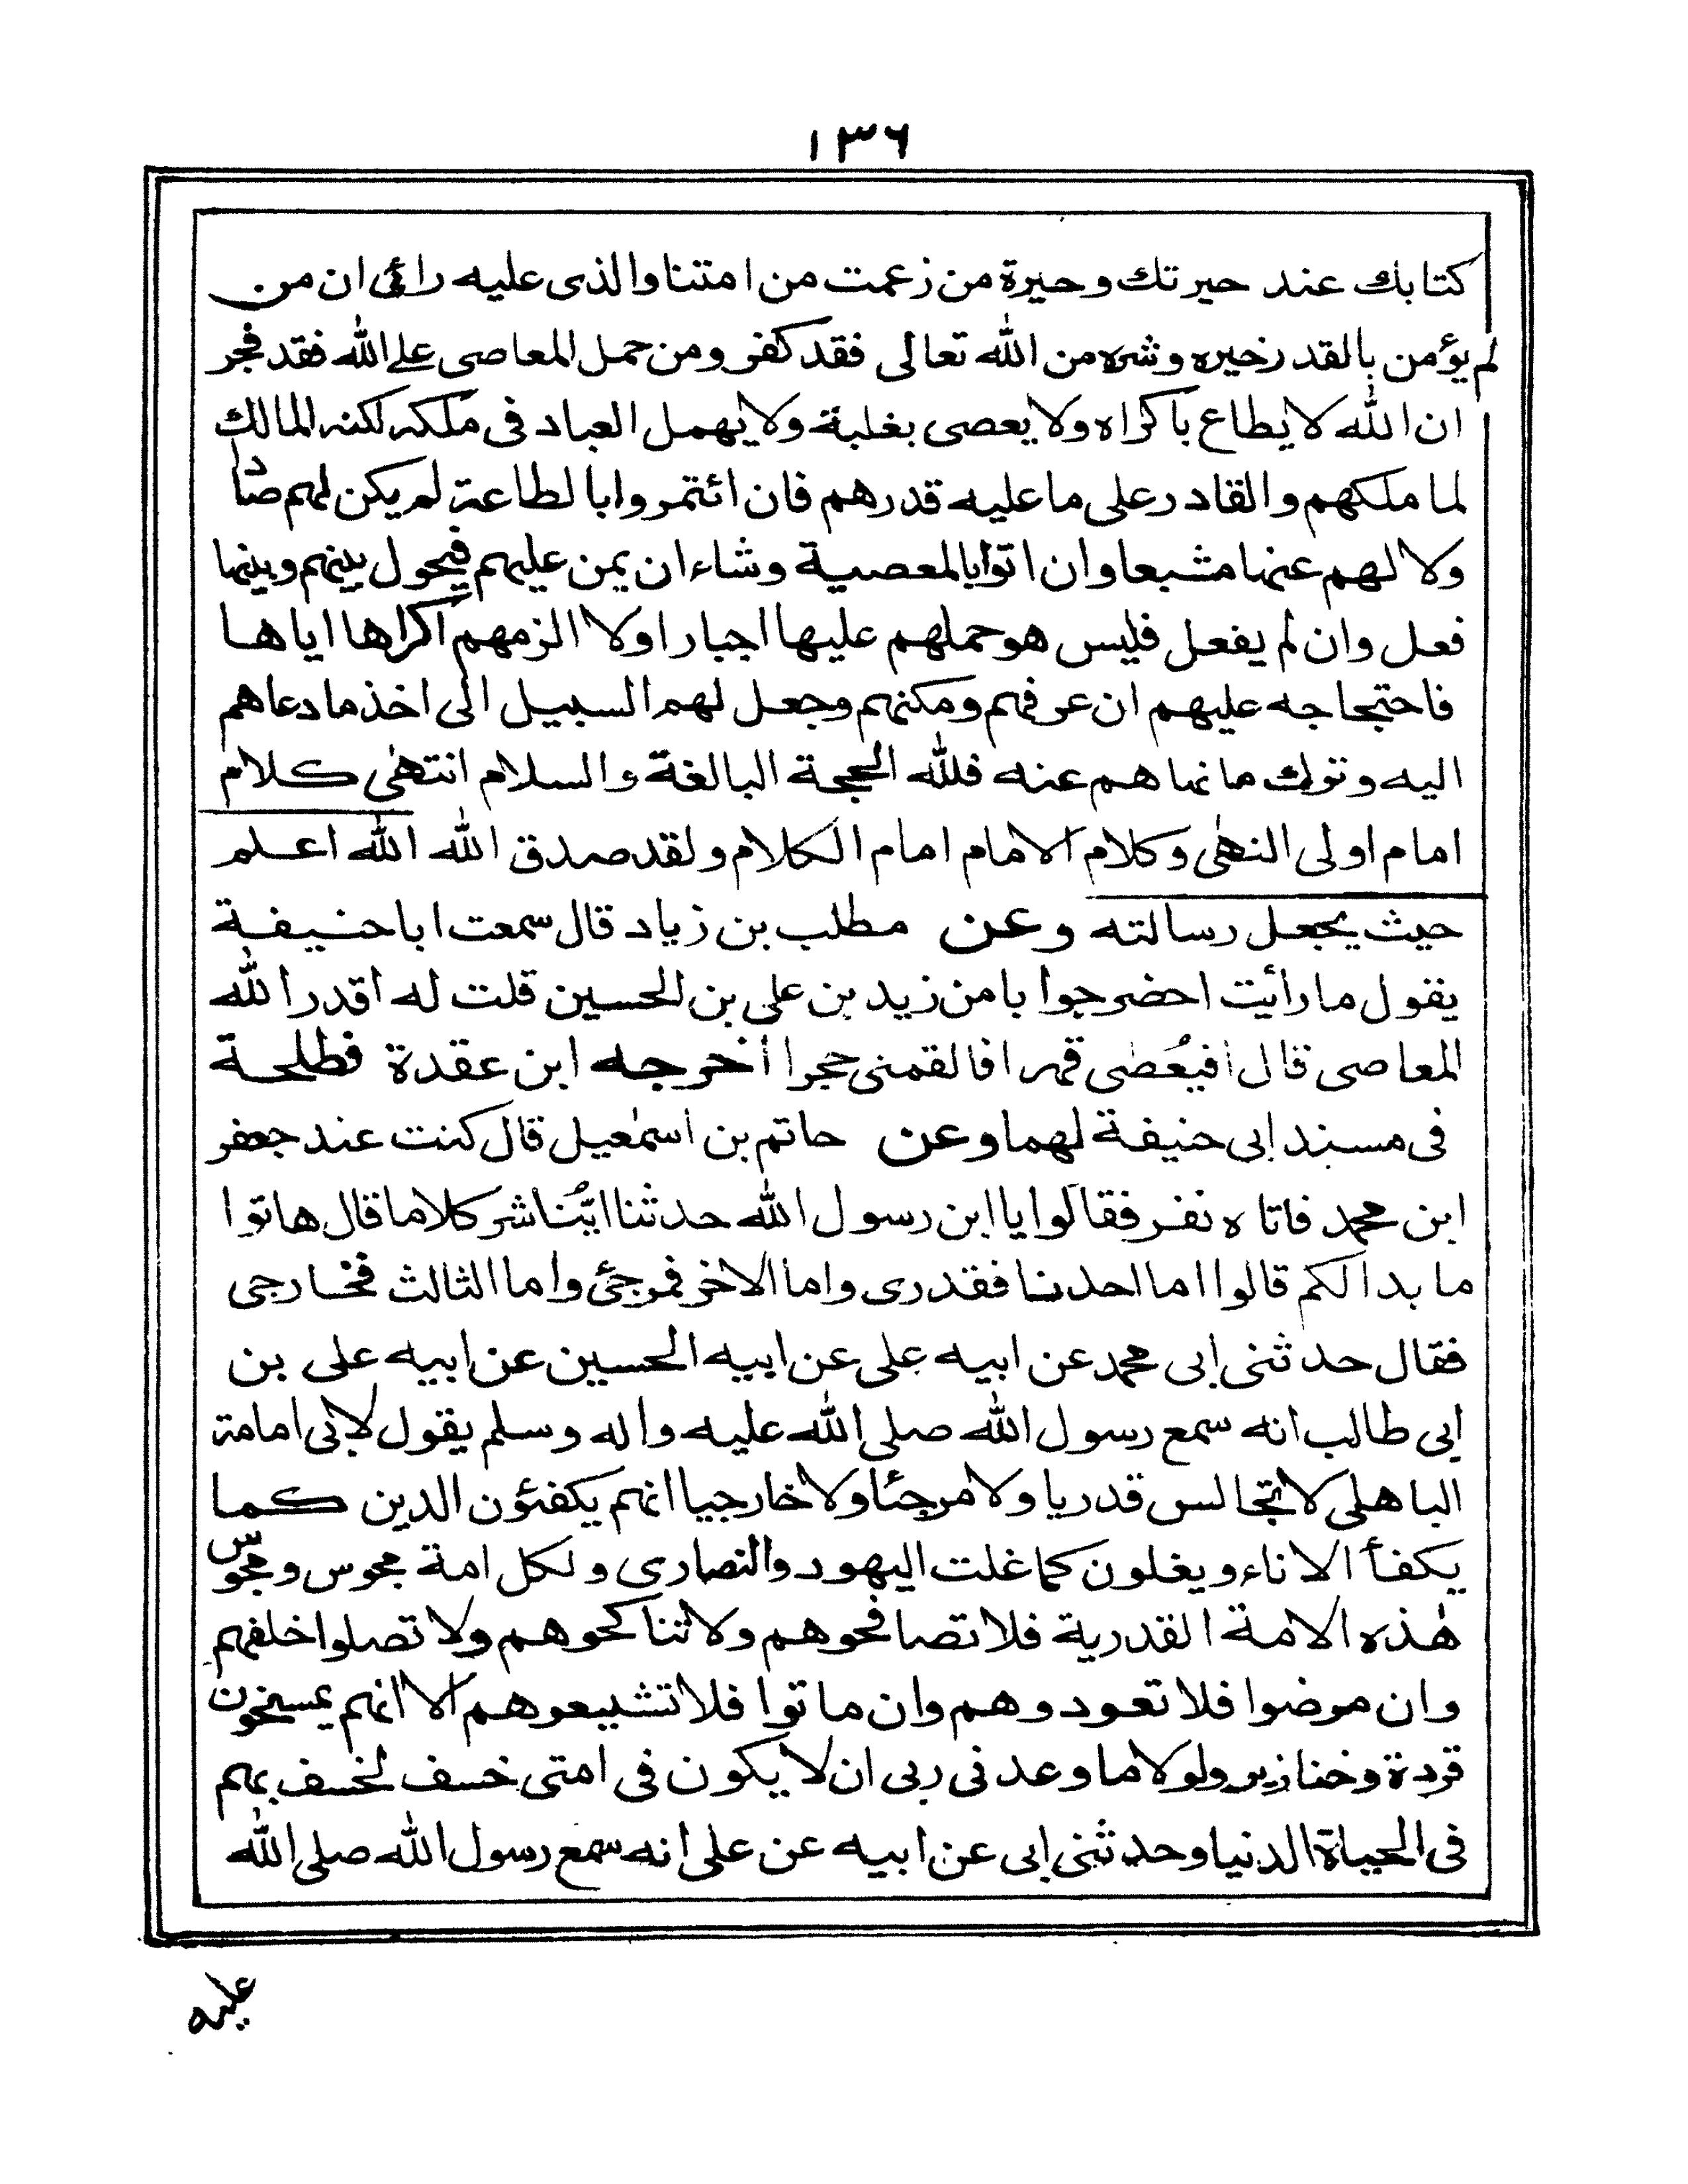 ١٣٦
كتابك عند حيرتك وحيرة من زعمت من امتنا والذى عليه رائى ان من
لم يؤمن بالقدر خيره وشره من الله تعالى فقد كفر ومن حمل المعاصى على الله فقد فجر
ان الله لا يطاع باكراه ولا يعصى بغلبة ولا يهمل العباد فى ملكه لكنه المالك
لما ملكهم والقادر على ما عليه قدرهم فان ائتمروا بالطاعة لم يكن لهم صادا
ولا لهم عنها مشبعا وان اتوا بالمعصية وشاء ان يمن عليهم فيحول بينهم وبينها
فعل وان لم يفعل فليس هو حملهم عليها اجبارا ولا الزمهم اكراها اياها
فاحتجاجه عليهم ان عرفهم ومكنهم وجعل لهم السبيل الى اخذ ما دعاهم
اليه وترك ما نها هم عنه فلله الحجة البالغة والسلام انتهى كلام
امام اولى النهى وكلام الامام امام الكلام ولقد صدق الله الله اعلم
حيث يجعل رسالته وعن مطلب بن زياد قال سمعت ابا حنيفة
يقول ما رأيت احضر جوابا من زيد بن على بن الحسين قلت له اقدر الله
المعاصى قال أفيُعصٰى قهرا فالقمنى حجرا أخرجه ابن عقدة فطلحة
فى مسند ابى حنيفة لهما وعن حاتم بن اسمٰعيل قال كنت عند جعفر
ابن محمد فاتاه نفر فقالوا يا ابن رسول الله حدثنا ايُّنا شر كلاما قال هاتوا
ما بدا لكم قالوا اما احدنا فقدرى واما الاخر فمرجئ واما الثالث فخارجى
فقال حدثنى ابى محمد عن ابيه على عن ابيه الحسين عن ابيه على بن
ابى طالب انه سمع رسول الله صلى الله عليه واله وسلم يقول لابى امامة
الباهلى لا تجالس قدريا ولا مرجئا ولا خارجيا انهم يكفئون الدين كما
يكفأ الاناء ويغلون كما غلت اليهود والنصارى ولكل امة مجوس ومجوس
هٰذه الامة القدرية فلا تصافحوهم ولا تناكحوهم ولا تصلوا خلفهم
وان مرضوا فلا تعودوهم وان ماتوا فلا تشيعوهم الا انهم يمسخون
قردة وخنازير ولولا ما وعدنى ربى ان لا يكون فى امتى خسف لخسف بهم
فى الحياة الدنيا وحدثنى ابى عن ابيه عن على انه سمع رسول الله صلى الله
عليه